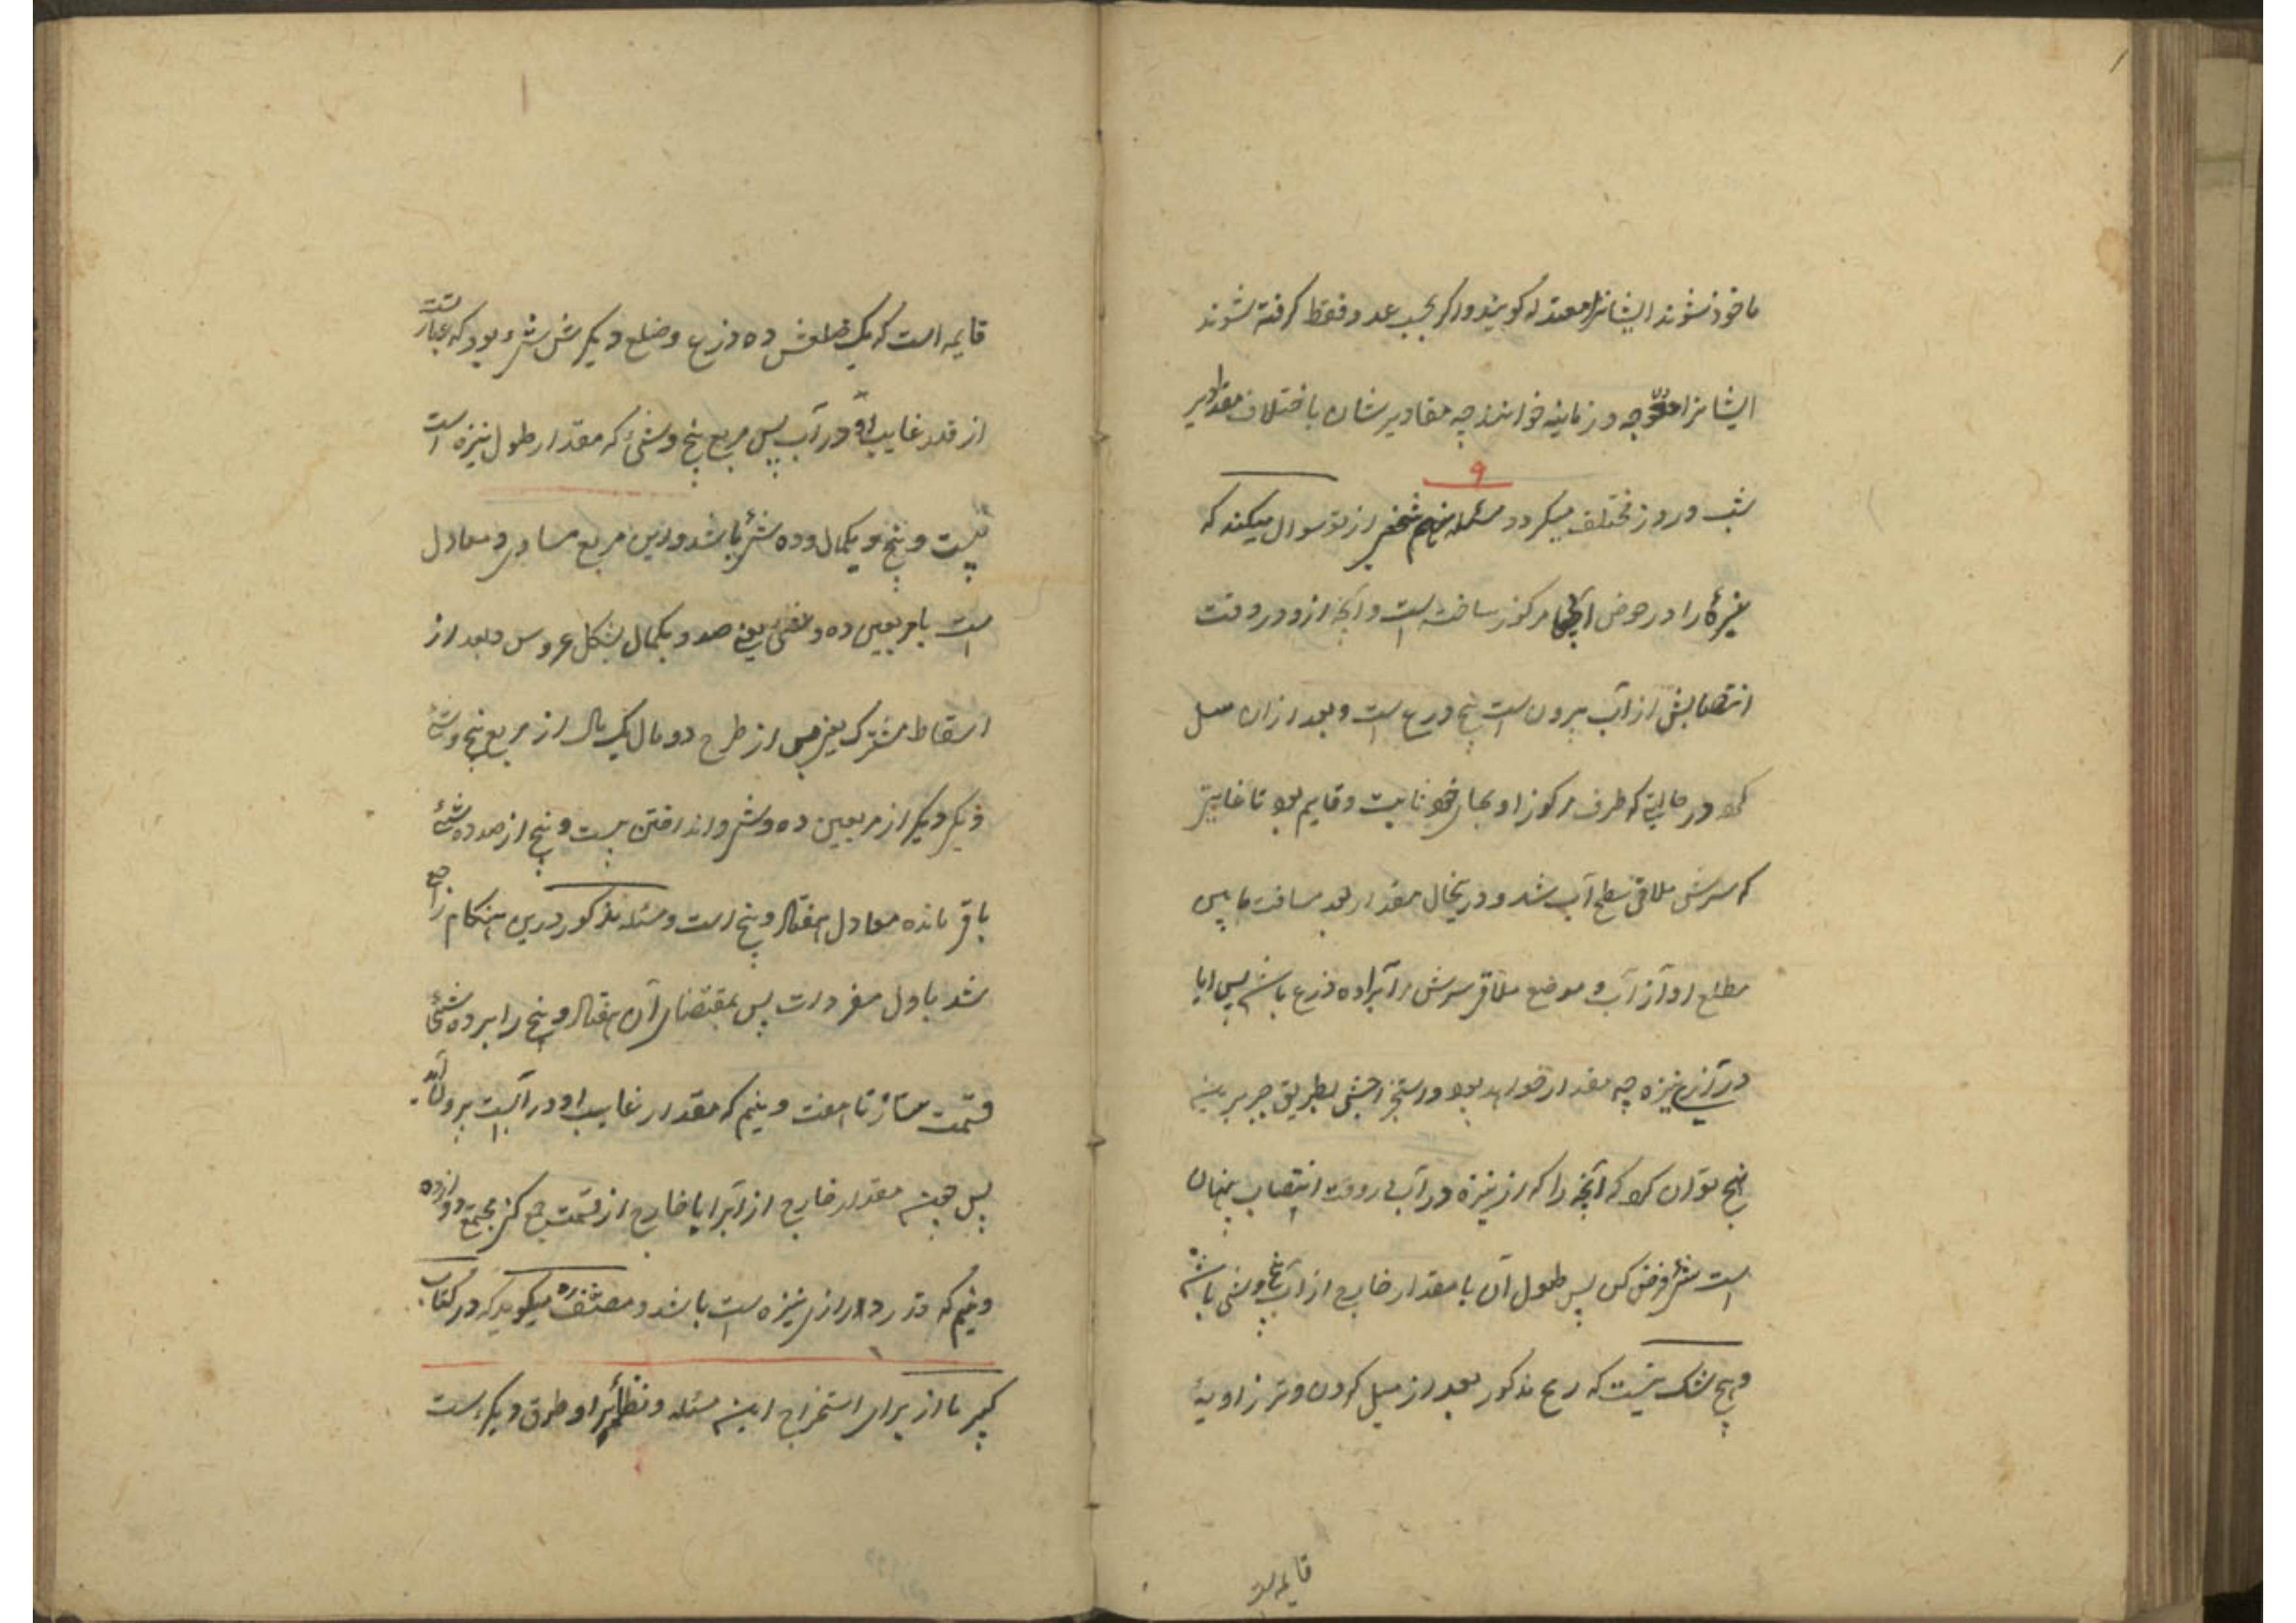 ماخوذ شوند ایشانرا معتدله کویند و اکر بحسب عدد فقط کرفته شوند
ایشانرا معوّجه و زمانیه خوانند چه مقادیر شان باختلاف مقادیر
۹
شب و روز مختلف میکردد مسئله نهم شخصی از تو سوال میکند که
نیزهٔ را در حوض آبی مرکوز ساخته است و آنچه ازو در وقت
انتصابش از آب بیرون است پنج درع است و بعد از ان میل
کرد در حالتی که طرف مرکوز او بجای خود ثابت و قایم بود تا غایتی
که سرش ملاقی سطح آب شد و درینحال مقدار بعد مسافت مابین
مطلع او از آب و موضع ملاقی سرش مر آبرا ده ذرع باشد پس ایا
درازی نیزه چه مقدار خواهد بود و استخراجش بطریق جبر برین
نهج توان کرد که آنچه را که از نیزه در آب در وقت انتصاب پنهان
است شئ فرض کن پس طول آن با مقدار خارج از آب پنج و شئ باشد
و هیچ شک نیست که رمح مذکور بعد از میل کردن وتر زاویهٔ
قایمه است
قایمه است که یک ضلعش ده ذرع و ضلع دیکرش شئ بود که عبارتست
از قدر غایب او در آب پس مربع پنج و شئ که مقدار طول نیزه است
بیست و پنج و یکمال و ده شئ باشد و این مربع مساوی و معادل
است با مربعین ده و شئ یعنی صد و یکمال بشکل عروس و بعد از
اسقاط مشترک یعنی پس از طرح دو مال یک مال از مربع پنج و شئ
و یکی دیکر از مربعین ده و شئ و انداختن بیست و پنج از صد ده شئ
باقی مانده معادل هفتاد و پنج است و مسئله مذکور درین هنکام راجع
شد باول مفردات پس بمقتضای آن هفتاد و پنج را بر ده شئ
قسمت ساز تا هفت و نیم که مقدار غایب او در آبست بیرون آید
پس همین مقدار خارج از آبرا با خارج از قسمت جمع کن مجتمع دوازده
و نیم که قدر درازی نیزه است باشد و مصنف ره میکوید که در کتاب
کبیر ما از برای استخراج این مسئله و نظایر او طرق دیکر است